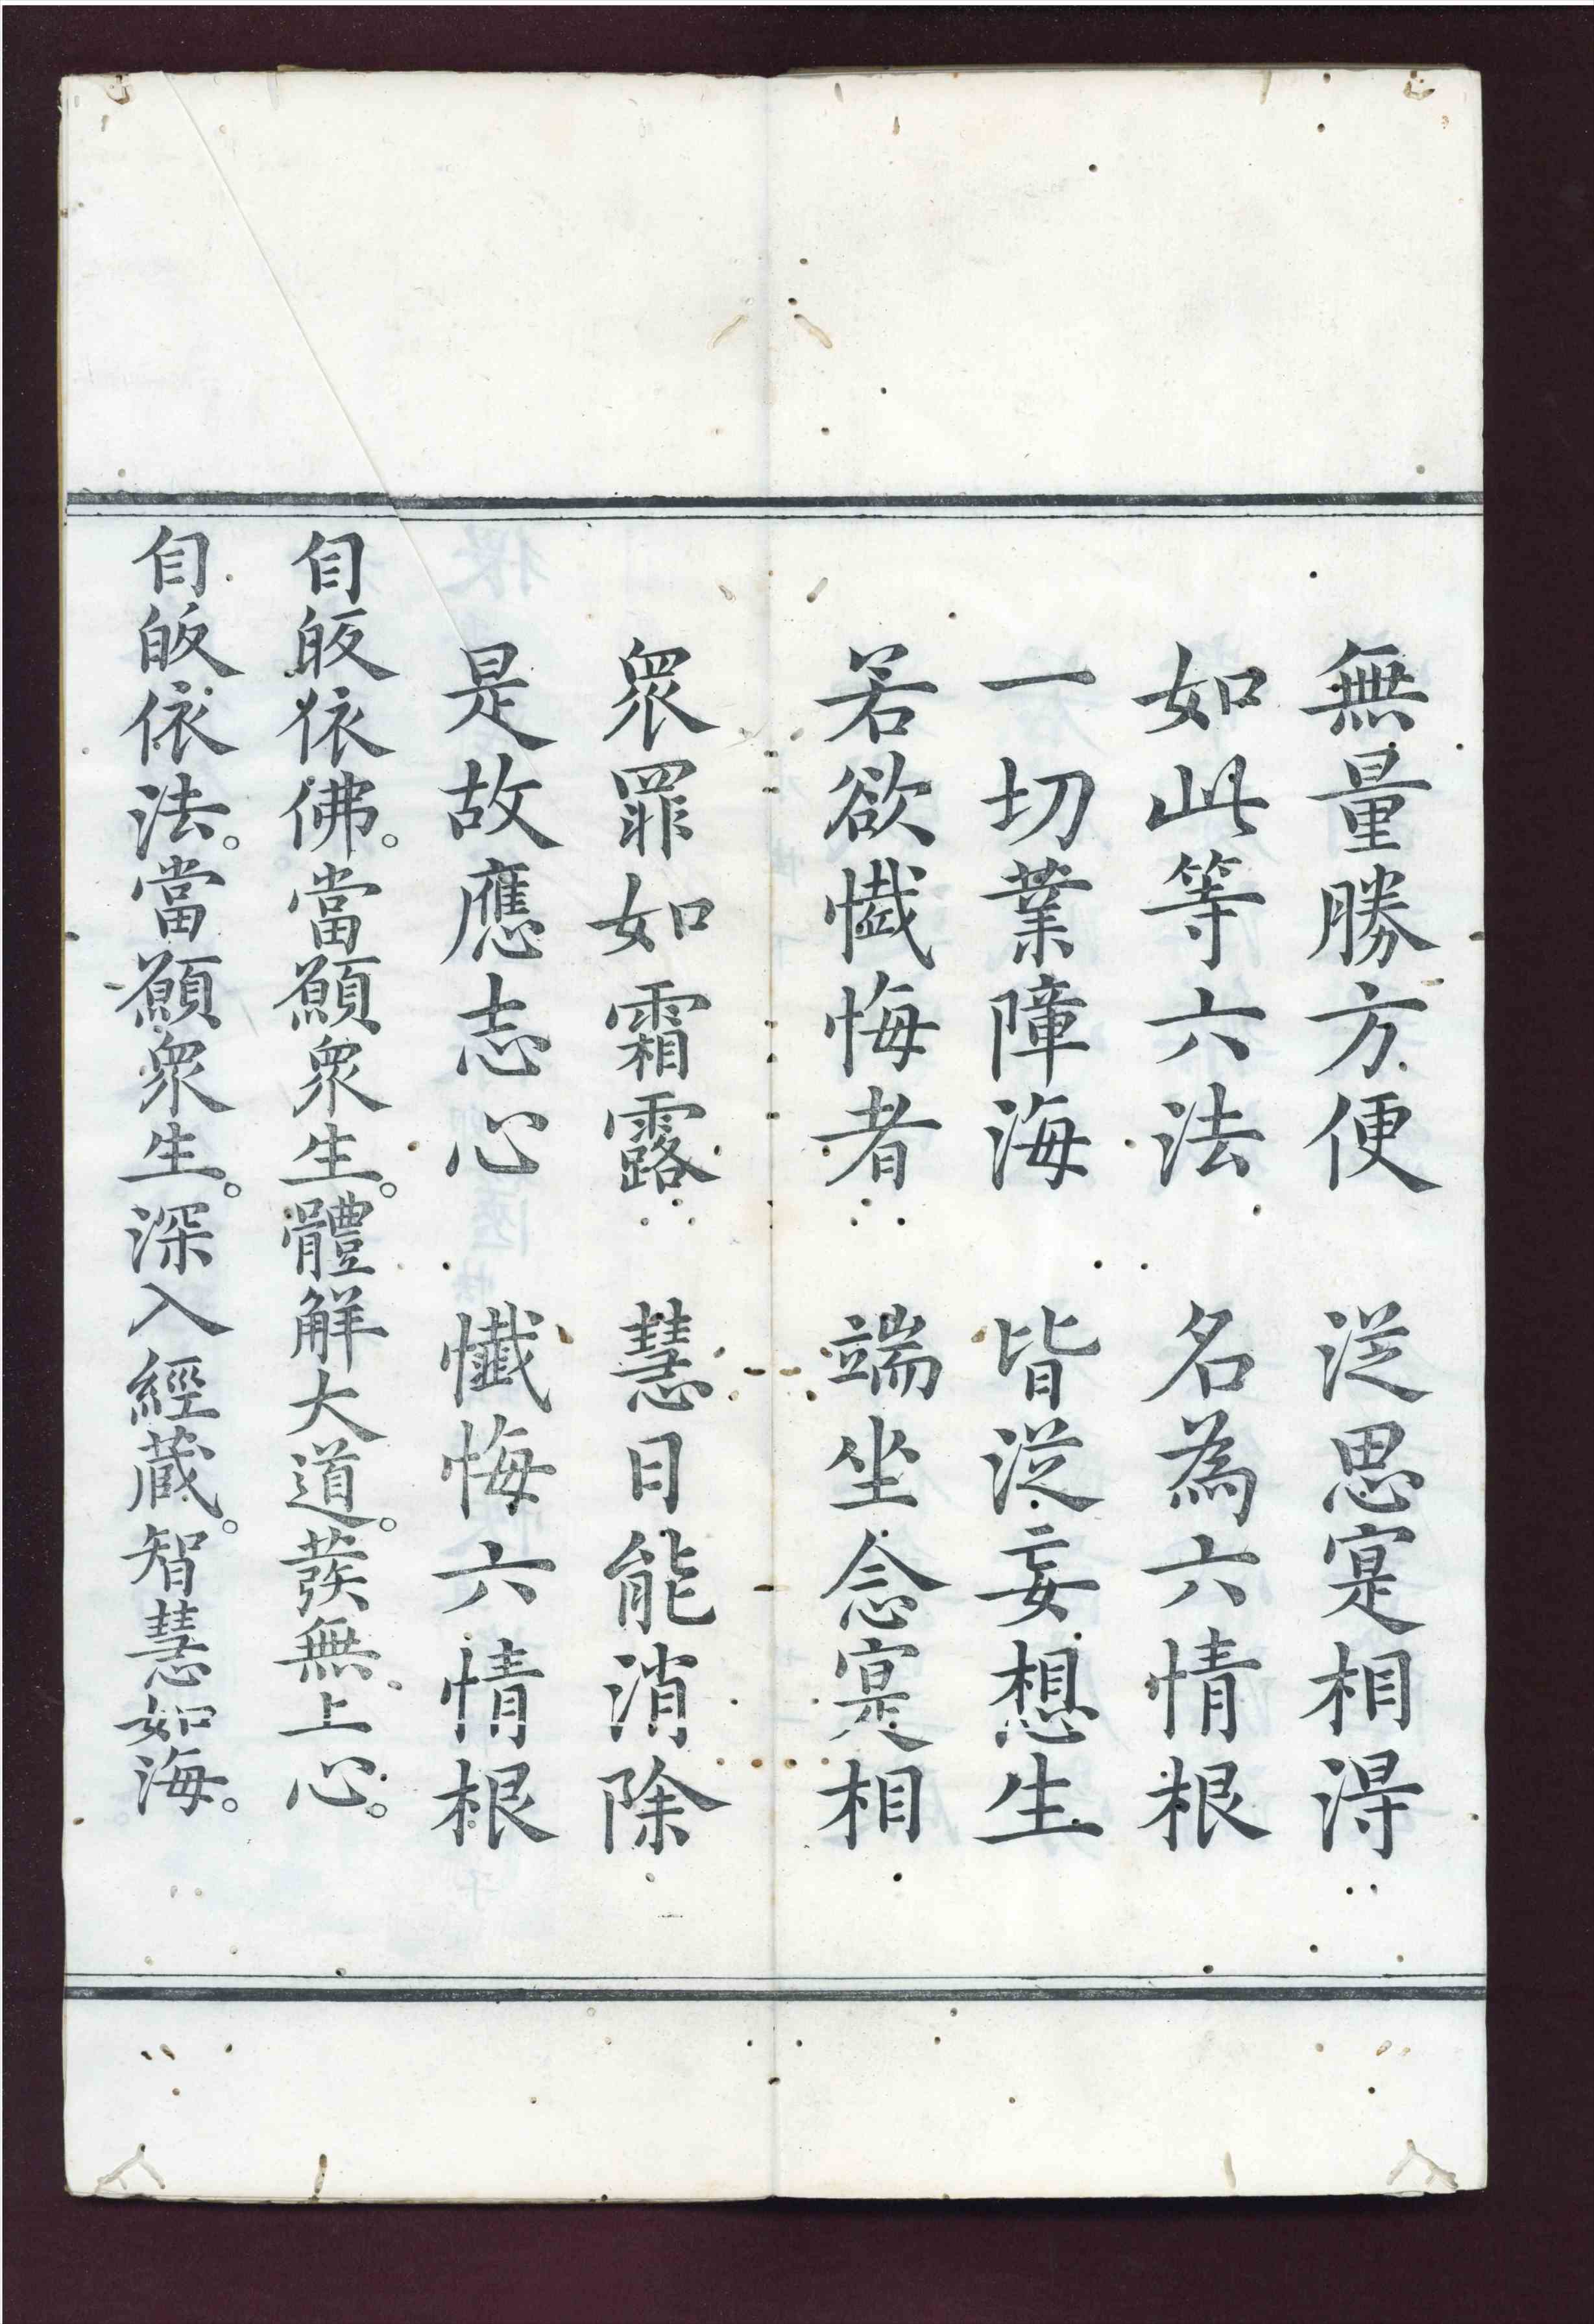 無量勝方便　從思寔相得
如此等六法　名為六情根
一切業障海　皆從妄想生
若欲懺悔者　端坐念寔相
眾罪如霜露　慧日能消除
是故應志心　懺悔六情根
自皈依佛。當願眾生。體解大道。發無上心。
自皈依法。當願眾生。深入經蔵。智慧如海。